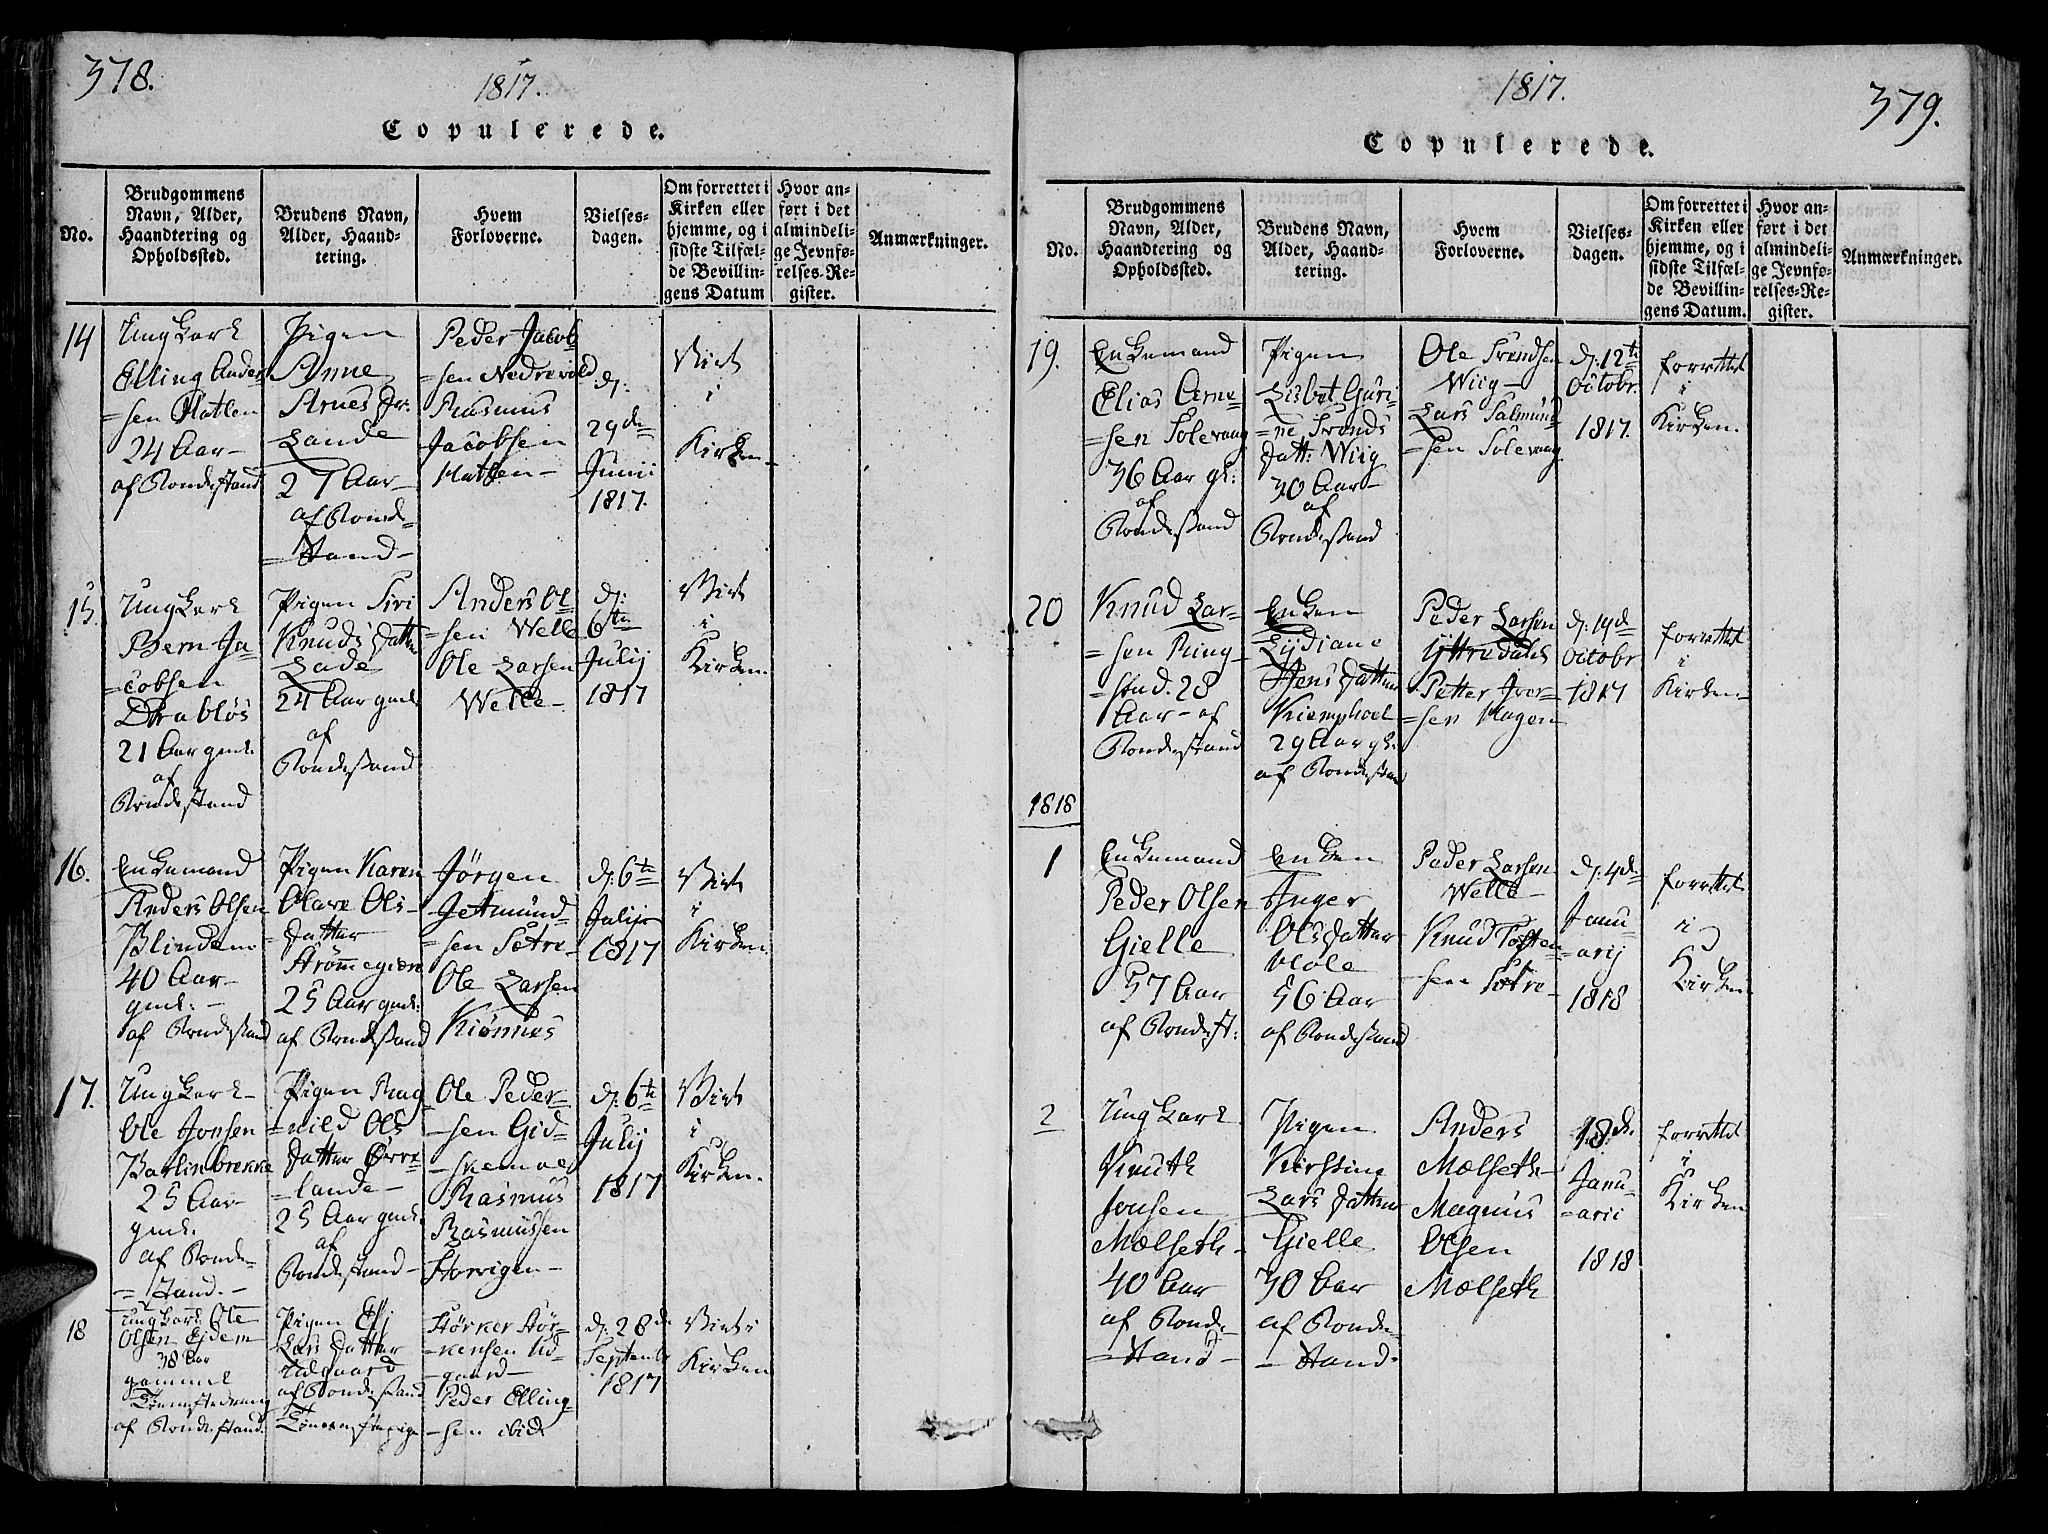 378.
1817.
Copulerede.
No.
Brudgommens
Navn, Alder,
Haandtering og
Opholdssted.
Brudens Navn,
Alder, Haand-
tering.
Hvem
Forloverne.
Vielses-
dagen.
Om forrettet i
Kirken eller
hjemme, og i
sidste Tilfæl-
de Bevillin-
gens Datum
Hvor an-
ført i det
almindeli-
ge Jevnfø-
relses-Re-
gister.
Anmærkninger.
14
Ung Karl
Elling Ander
=sen Hatlen
24 Aar-
af Bondestand
Pigen
Anne
Arnes Dr.
Lande
27 Aar-
af Bonde
=Stand-
Peder Jacob
=sen Nedrevold
Rasmus
Jacobsen
Hatlen-
d:
29de
Junii
1817.
Viet
i
Kirken-
15
Ung Karl
Bern Ja-
=cobsen
Drabløs
21 Aar gml.
af
Bondestand
Pigen Siri
Knuds Datter
Lade
24 Aar gml.
af
Bondestand
Anders Ol-
=sen Welle
Ole Larsen
Welle-
d:
6te
Julij
1817
Viet
i
Kirken.
16.
Enkemand
Anders Olsen
Blindem
40 Aar-
gml.-
af Bondestand
Pigen Karen
Olave Ols-
Datter
Strømmegien
25 Aar gml.
af Bondestand
Jørgen
Getmund-
=sen Sætre-
Ole Larsen
Kiønnes
d: 6te
Julij
1817
Viet
i
Kirken.
17.
Ung Karl-
Ole Jonsen
Barlinbrekke
25 Aar-
gml.
af Bonde-
=Stand.-
Pigen Rag
=nild Ols
Datter Ørre
=lande-
25 Aar gml.
af
Bondestand-
Ole Peder-
-sen Gid-
Rasmus
Rasmussen
Storvigen-
d: 6te
Julij
1817
Viet
i
Kirken.
18
Ung Karl Ole
Olsen Ejdem
38 Aar
gammel
af Bondestand.
Pigen Elj
Lars Datter
Udgaard
af Bondestand
Størker Stør-
-kersen Ud-
-gaard-
Peder Elling-
-sen ibid
d: 28de
Septembr
1817
Viet i
Kirken
1817.
379.
Copulerede.
No.
Brudgommens
Navn, Alder,
Haandtering og
Opholdssted.
Brudens Navn,
Alder, Haand-
tering.
Hvem
Forloverne.
Vielses-
dagen.
Om forrettet i
Kirken eller
hjemme, og i
sidste Tilfæl-
de Bevillin-
gens Datum.
Hvor an-
ført i det
almindeli-
ge Jevnfø-
relses-Re-
gister.
Anmærkninger.
19.
Enkemand
Elias Arne-
=sen Solevaag
36 Aar gl:
af
Bondestand
Pigen
Lisbet Guri-
=ne Tronds
Datt: Wiig
30 Aar-
af
Bondestand
Ole Trondsen
Wiig-
Lars Salmund-
=sen Solevaag
d: 12te
Octobr.
1817.
forrettet
i
Kirken.
20
Knud Lar-
=sen Ring-
=stad. 28
Aar- af
Bondestand
Enken
Lydiane
Jens Datter
Kiemphoel
29 Aar gl.
af Bondestand
Peder Larsen
Yttredahl
Petter Iver-
=sen Hagen
d: 19de
Octobr
1817
forrettet
i
Kirken-
1818
1
Enkemand
Peder Olsen
Gielle
57 Aar
af Bondest:
Enken
Inger
Ols Datter
Hole
56 Aar
af Bondestand
Peder Larsen
Welle-
Knud Tosten-
-sen Sætre-
d: 4de
Janu-
=arij
1818
forrettet
i
Kirken
2
Ung Karl
Knuth
Jonsen
Mælseth-
40 Aar
af Bonde-
=Stand-
Pigen
Kirstine
Lars Datter
Gielle
30 Aar
af Bonde-
-Stand-
Anders
Mælseth-
Magnus
Olsen
Mælseth
18de.
Janu-
=arii
1818
forrettet
i
Kirken